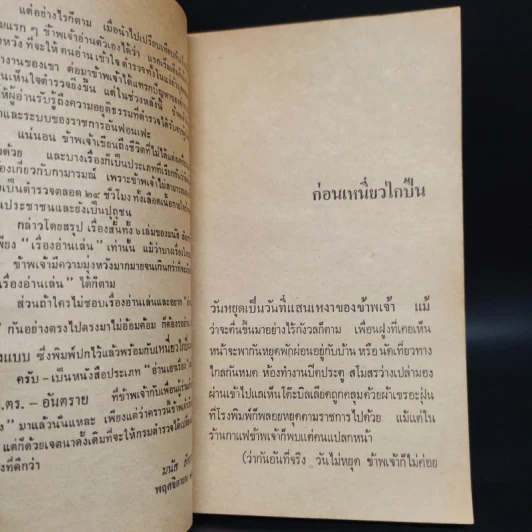 แต่อย่างไรก็ตาม เมื่อนำไปเปรียบเทียบ
แรก ๆ ข้าพเจ้าอ่านตัวเองได้ว่า แรกเริ่มเดิม
หวัง ที่จะให้ คนอ่าน เข้าใจ ตำรวจทั้งในแง่
งานของเขา ต่อมาข้าพเจ้าได้แทรกปัญหา
เห็นใจตำรวจยิ่งขึ้น แต่ในช่วงหลังนี้ ข้าพเจ้า
ให้ผู้อ่านรับรู้ถึงความอยุติธรรมที่ตำรวจได้รับ
และระบบของราชการอันฟอนเฟะ
แน่นอน ข้าพเจ้าเขียนถึงชีวิตที่ไม่ได้แต่ง
ด้วย และบางเรื่องก็เป็นประเภทที่เรียกกัน
เกี่ยวกับกามารมณ์ เพราะข้าพเจ้าไม่สามารถ
เป็นตำรวจตลอด ๒๔ ชั่วโมง ทั้งเลือดเนื้อกายใจ
ประชาชนและยังเป็นปุถุชน
กล่าวโดยสรุป เรื่องสั้นทั้ง ๖ เล่มของมนัส
เพียง "เรื่องอ่านเล่น" เท่านั้น แม้ว่าบางเรื่อง
ข้าพเจ้ามีความมุ่งหวังมากมายจนเกินกว่าที่
เรื่องอ่านเล่น" ได้ก็ตาม
ส่วนถ้าใครไม่ชอบเรื่องอ่านเล่นและอยาก
" กันอย่างตรงไปตรงมาไม่อ้อมค้อม ก็ต้อง
แบบ ซึ่งพิมพ์ปกไว้แล้วพร้อมกับเหนี่ยวไกปืน
ครับ – เป็นหนังสือประเภท "อ่านเอาเรื่อง"
ตร. – อันตราย ที่ข้าพเจ้ากับเพื่อนผู้
มาแล้วนั่นแหละ เพียงแต่ว่าคราวนี้ข้าพเจ้า
แต่ก็ด้วยเจตนาดั้งเดิมที่จะให้กรมตำรวจได้
ที่ดีกว่า
มนัส
พฤศจิกายน
ก่อนเหนี่ยวไกปืน
วันหยุดเป็นวันที่แสนเหงาของข้าพเจ้า แม้
ว่าจะตื่นขึ้นมาอย่างไร้กังวลก็ตาม เพื่อนฝูงที่เคยเห็น
หน้าจะพากันหยุดพักผ่อนอยู่กับบ้าน หรือ นัดเที่ยวทาง
ไกลกันหมด ห้องทำงานปิดประตู สโมสรว่างเปล่ามอง
ผ่านเข้าไปแลเห็น โต๊ะบิลเลียดถูกคลุมด้วยผ้าเซอะฝุ่น
ที่โรงพิมพ์ก็พลอยหยุดตามราชการไปด้วย แม้แต่ใน
ร้านกาแฟข้าพเจ้าก็พบแต่คนแปลกหน้า
(ว่ากันอันที่จริง วันไม่หยุด ข้าพเจ้าก็ไม่ค่อย